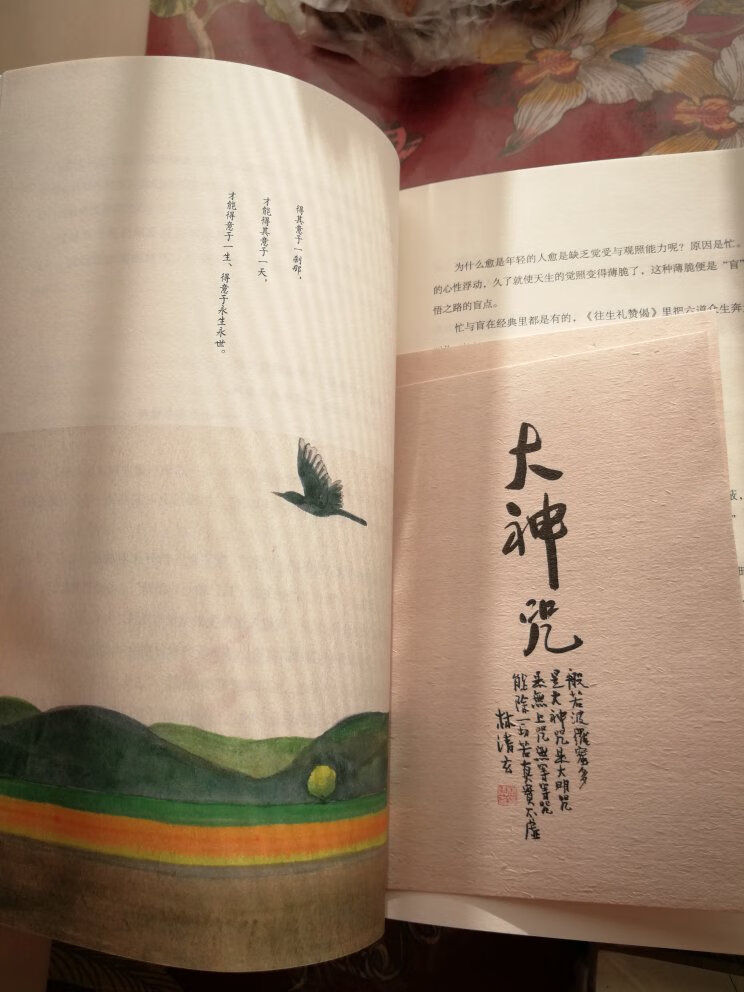 得其意于一刹那，
才能得其意于一天，
才能得意于一生、得意于永生永世。
为什么愈是年轻的人愈是缺乏觉受与观照能力呢？原因是忙。
的心性浮动，久了就使天生的觉照变得薄脆了，这种薄脆便是“盲”
悟之路的盲点。
忙与盲在经典里都是有的，《往生礼赞偈》里把六道众生奔
大神咒
般若波羅蜜多
是大神咒是大明咒
是無上咒是無等等咒
能除一切苦真實不虛
林清玄